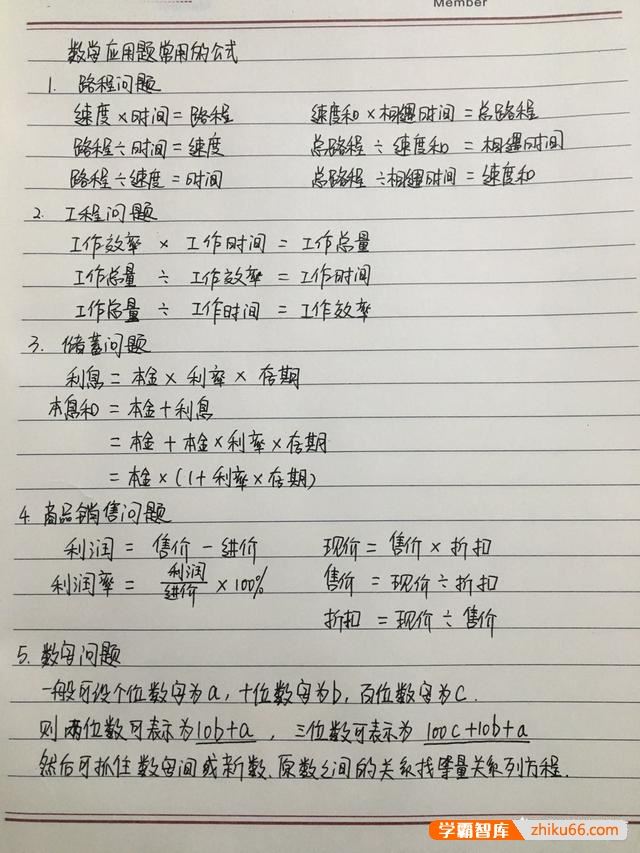 Member
数学应用题常用的公式
1. 路程问题
速度×时间=路程 速度和×相遇时间=总路程
路程÷时间=速度 总路程÷速度和=相遇时间
路程÷速度=时间 总路程÷相遇时间=速度和
2. 工程问题
工作效率 × 工作时间 = 工作总量
工作总量 ÷ 工作效率 = 工作时间
工作总量 ÷ 工作时间 = 工作效率
3. 储蓄问题
利息 = 本金 × 利率 × 存期
本息和 = 本金+利息
= 本金 + 本金×利率×存期
= 本金×(1+利率×存期)
4. 商品销售问题
利润 = 售价 - 进价 现价 = 售价 × 折扣
利润率 = 利润/进价 × 100% 售价 = 现价÷折扣
折扣 = 现价 ÷ 售价
5. 数字问题
一般可设个位数字为a, 十位数字为b, 百位数字为c.
则两位数可表示为10b+a, 三位数可表示为 100c+10b+a
然后可抓住数字间或新数、原数之间的关系找等量关系列方程.
学霸智库 zhiku66.com